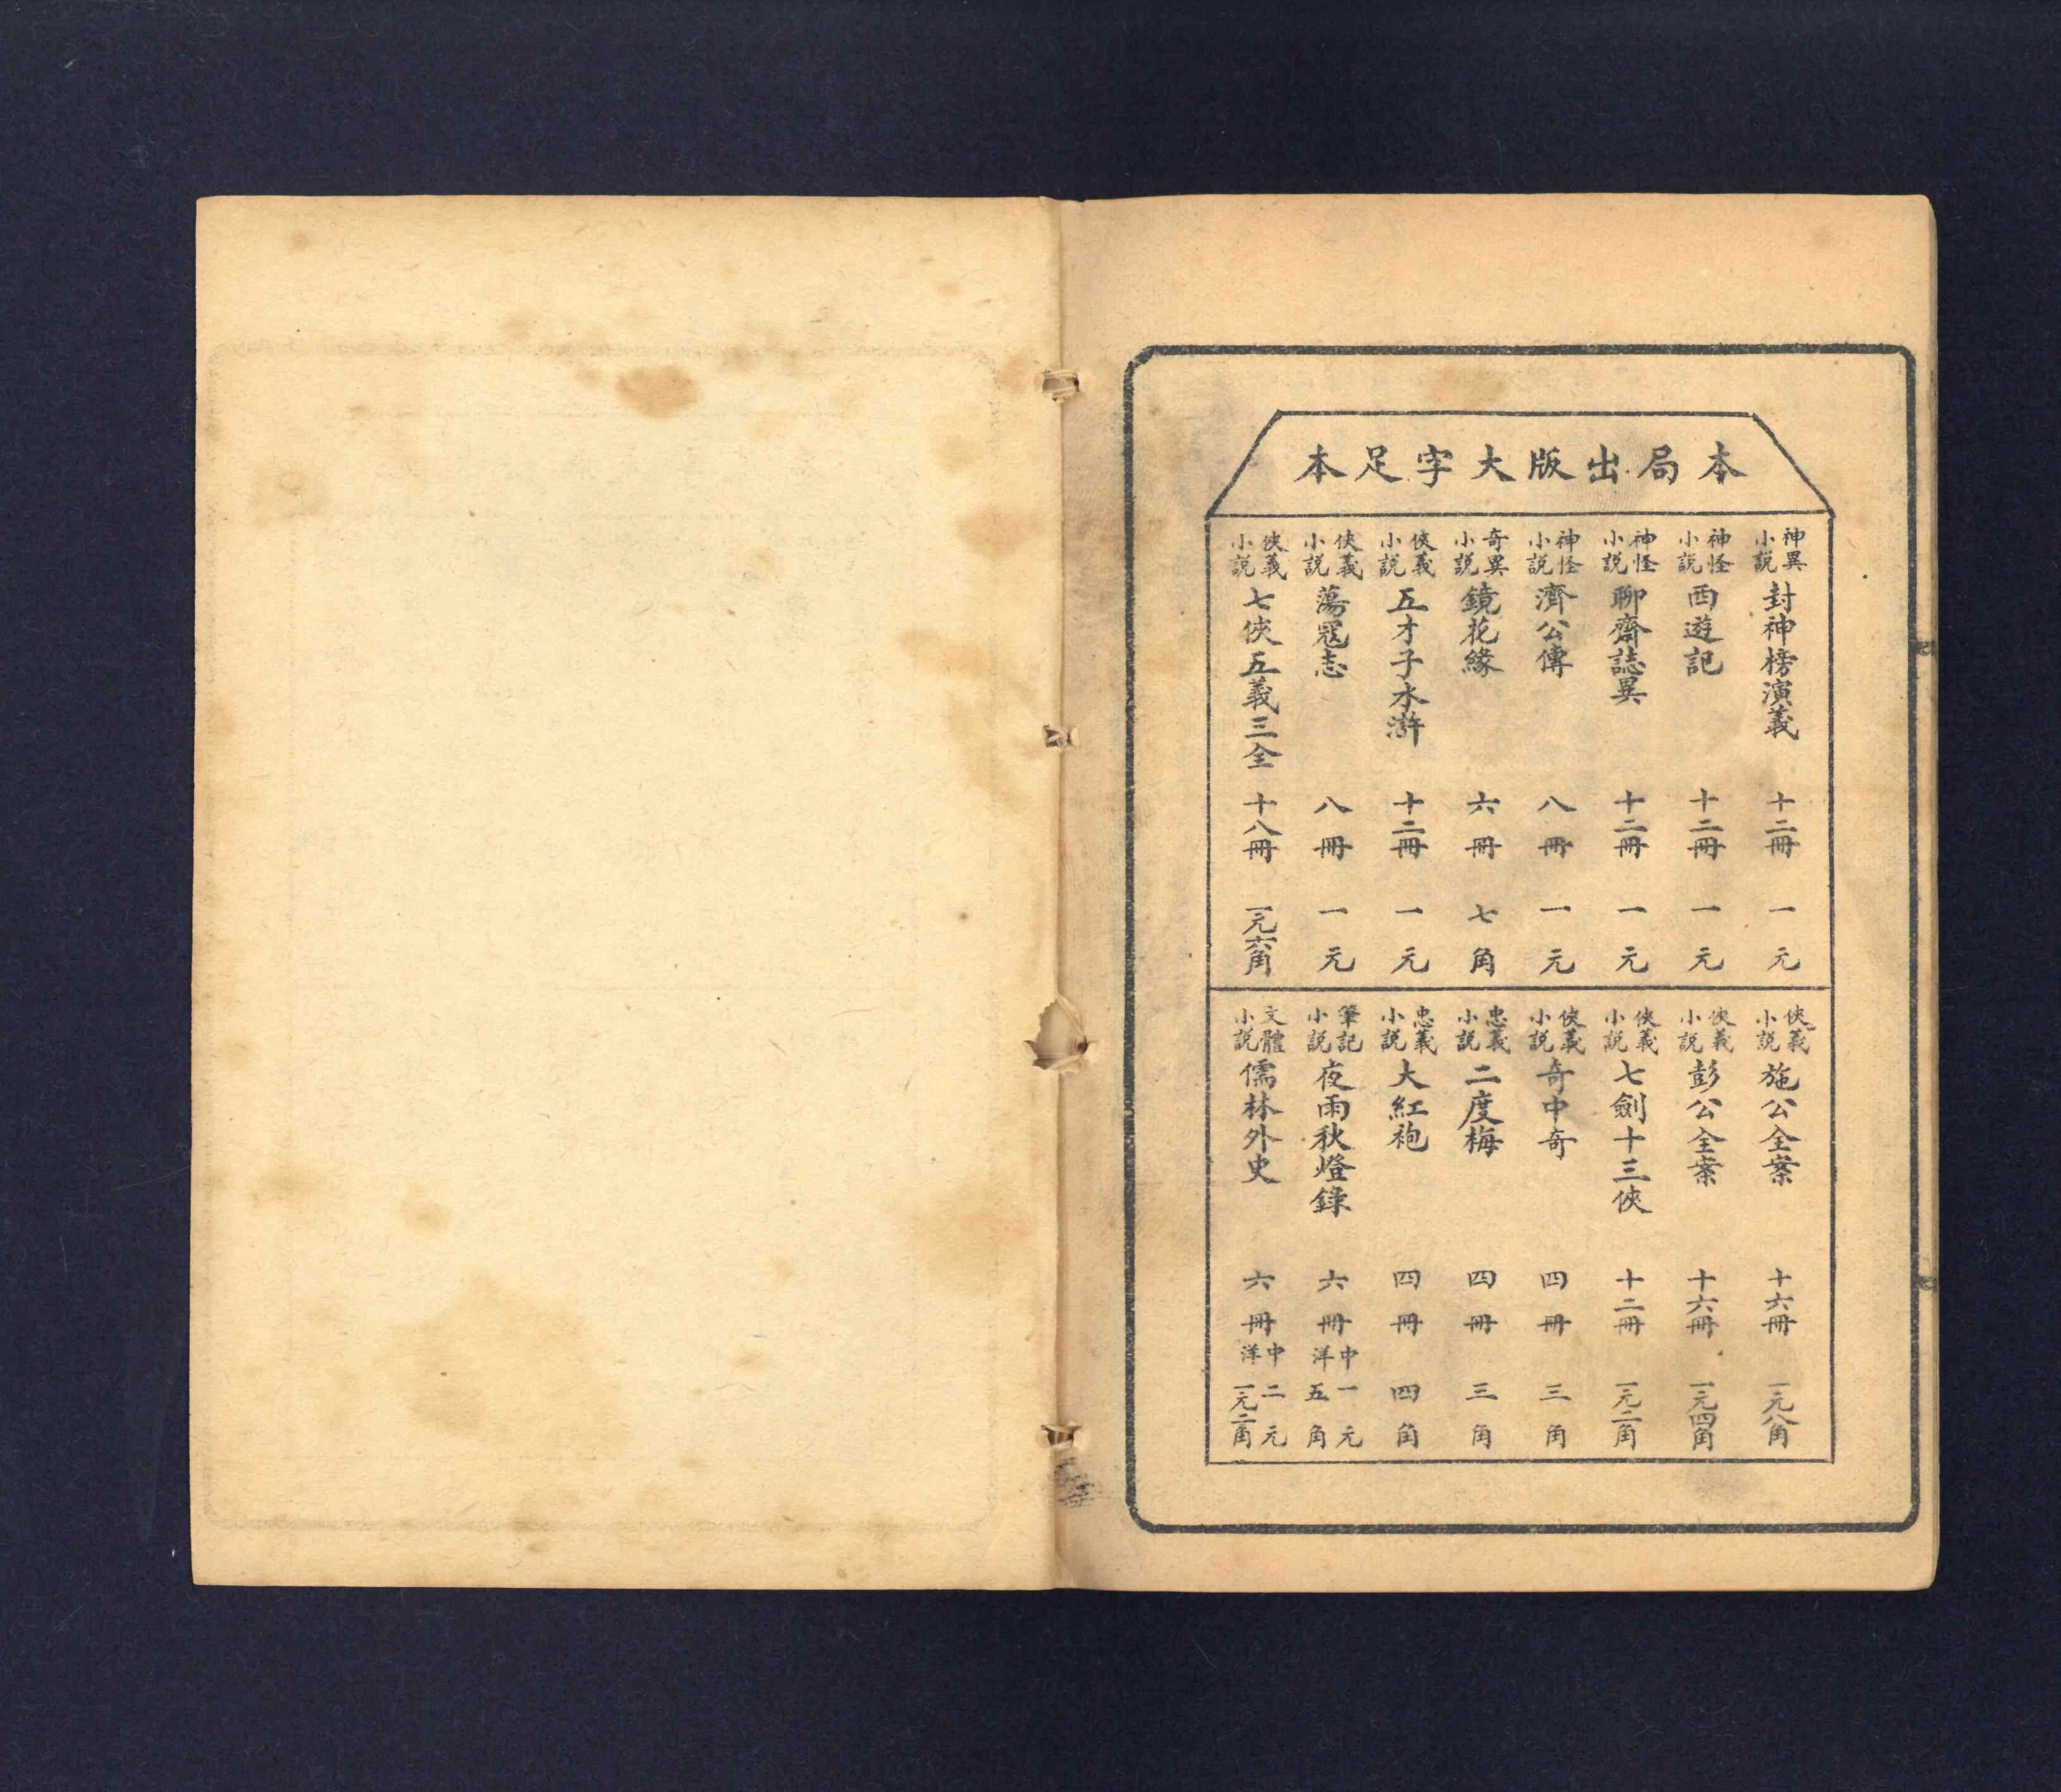 本局出版大字足本
神異小說 封神榜演義 十二冊 一元
神怪小說 西遊記 十二冊 一元
神怪小說 聊齋誌異 十二冊 一元
神怪小說 濟公傳 八冊 一元
奇異小說 鏡花緣 六冊 七角
俠義小說 五才子水滸 十二冊 一元
俠義小說 蕩寇志 八冊 一元
俠義小說 七俠五義三全 十八冊 一元六角
俠義小說 施公全案 十六冊 一元八角
俠義小說 彭公全案 十六冊 一元四角
俠義小說 七劍十三俠 十二冊 一元二角
俠義小說 奇中奇 四冊 三角
忠義小說 二度梅 四冊 三角
忠義小說 大紅袍 四冊 四角
筆記小說 夜雨秋燈錄 六冊 中一元 洋五角
文體小說 儒林外史 六冊 中二元 洋一元二角